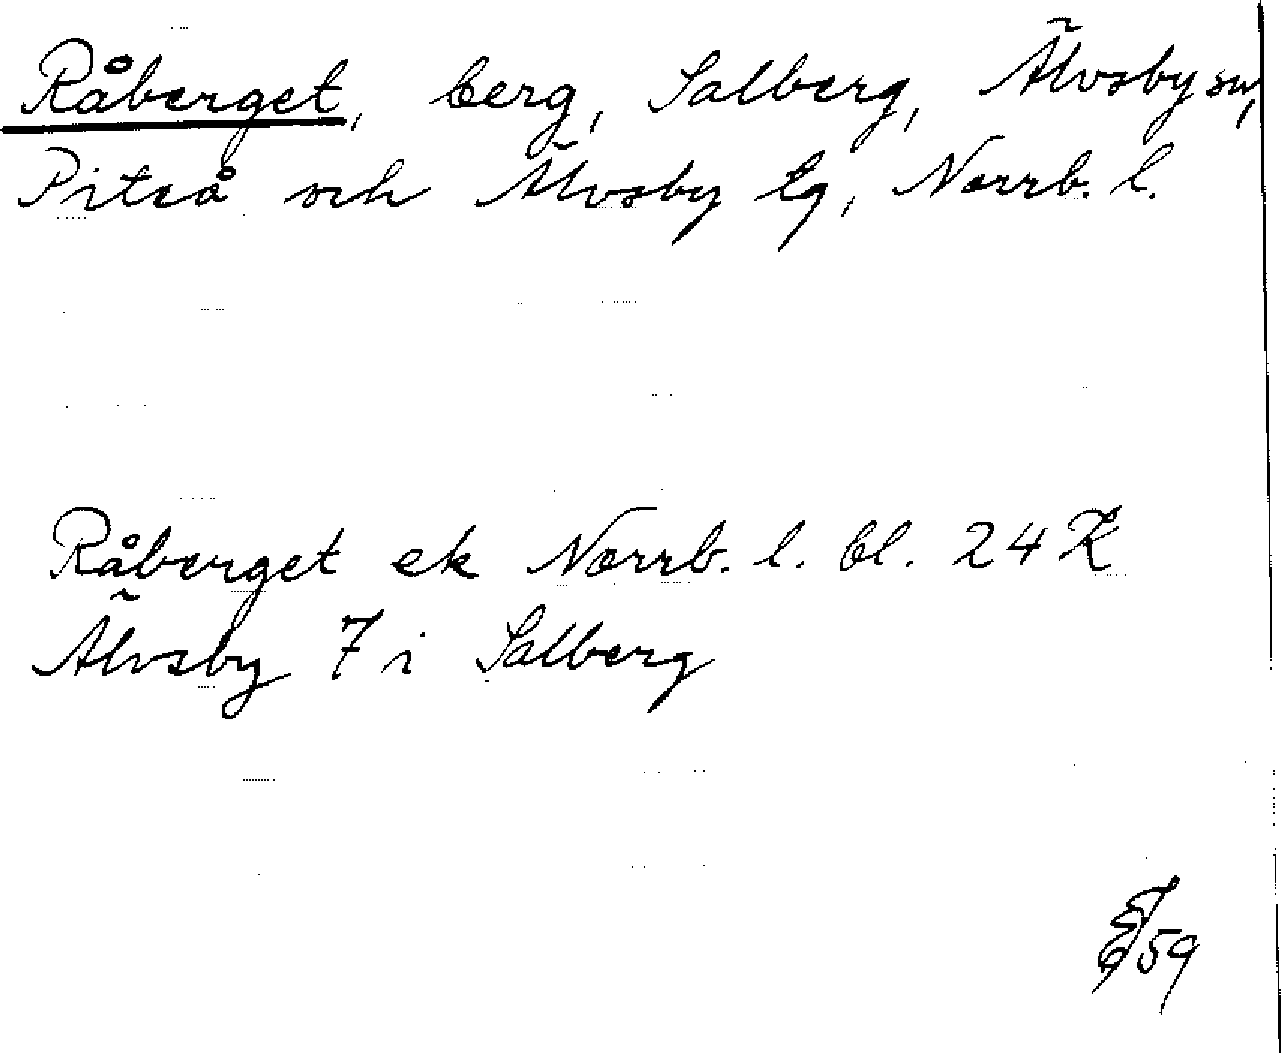 Råberget, berg, Salberg, Älvsby sn,
Piteå och Älvsby tg, Norrb. l.
Råberget ek Norrb. l. bl. 24 K
Älvsby 7 i Salberg
59